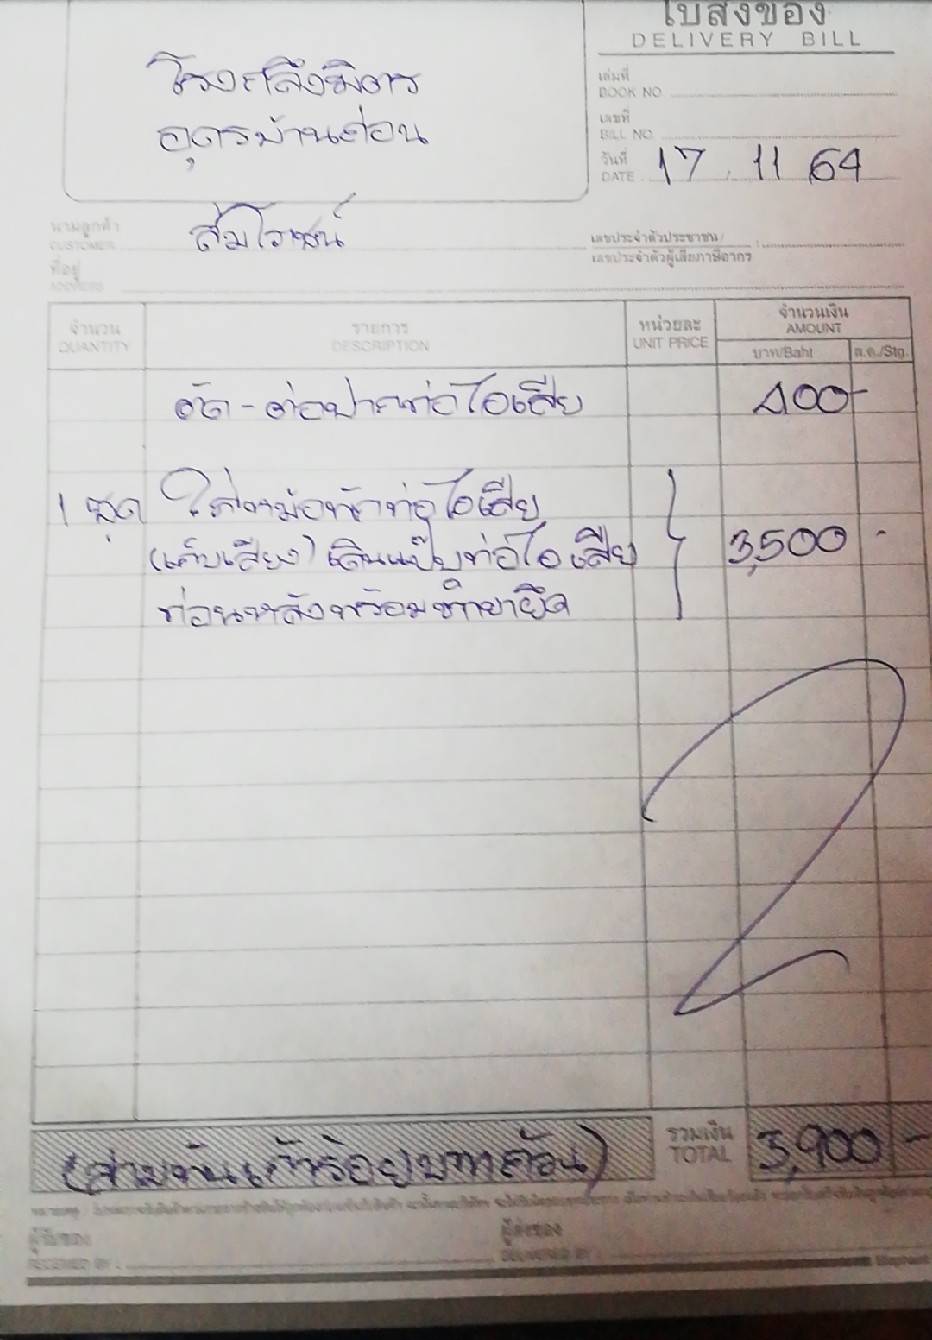 ใบส่งของ
DELIVERY BILL
โรงกลึงชังฮวด
อุดรบ้านด่อน
เล่มที่
BOOK NO
เลขที่
BILL NO.
วันที่ 17 11 64
DATE
นามลูกค้า ส้มโอชน์
CUSTOMER
เลขประจำตัวประชาชน/
เลขประจำตัวผู้เสียภาษีอากร
ที่อยู่
ADDRESS
จำนวน รายการ หน่วยละ จำนวนเงิน
QUANTITY DESCRIPTION UNIT PRICE AMOUNT
บาท/Baht ส.ต./Stg.
ตัด - ต่อปากท่อไอเสีย 400-
1 ชุด ใส่หม้อพักท่อไอเสีย
(เก็บเสียง) เดินแป๊บท่อไอเสีย 3,500 -
ท่อนหลังพร้อมขายึด
(สามพันเก้าร้อยบาทถ้วน) รวมเงิน 3,900 -
TOTAL
ผู้รับของ ผู้ส่งของ
RECEIVED BY DELIVERED BY